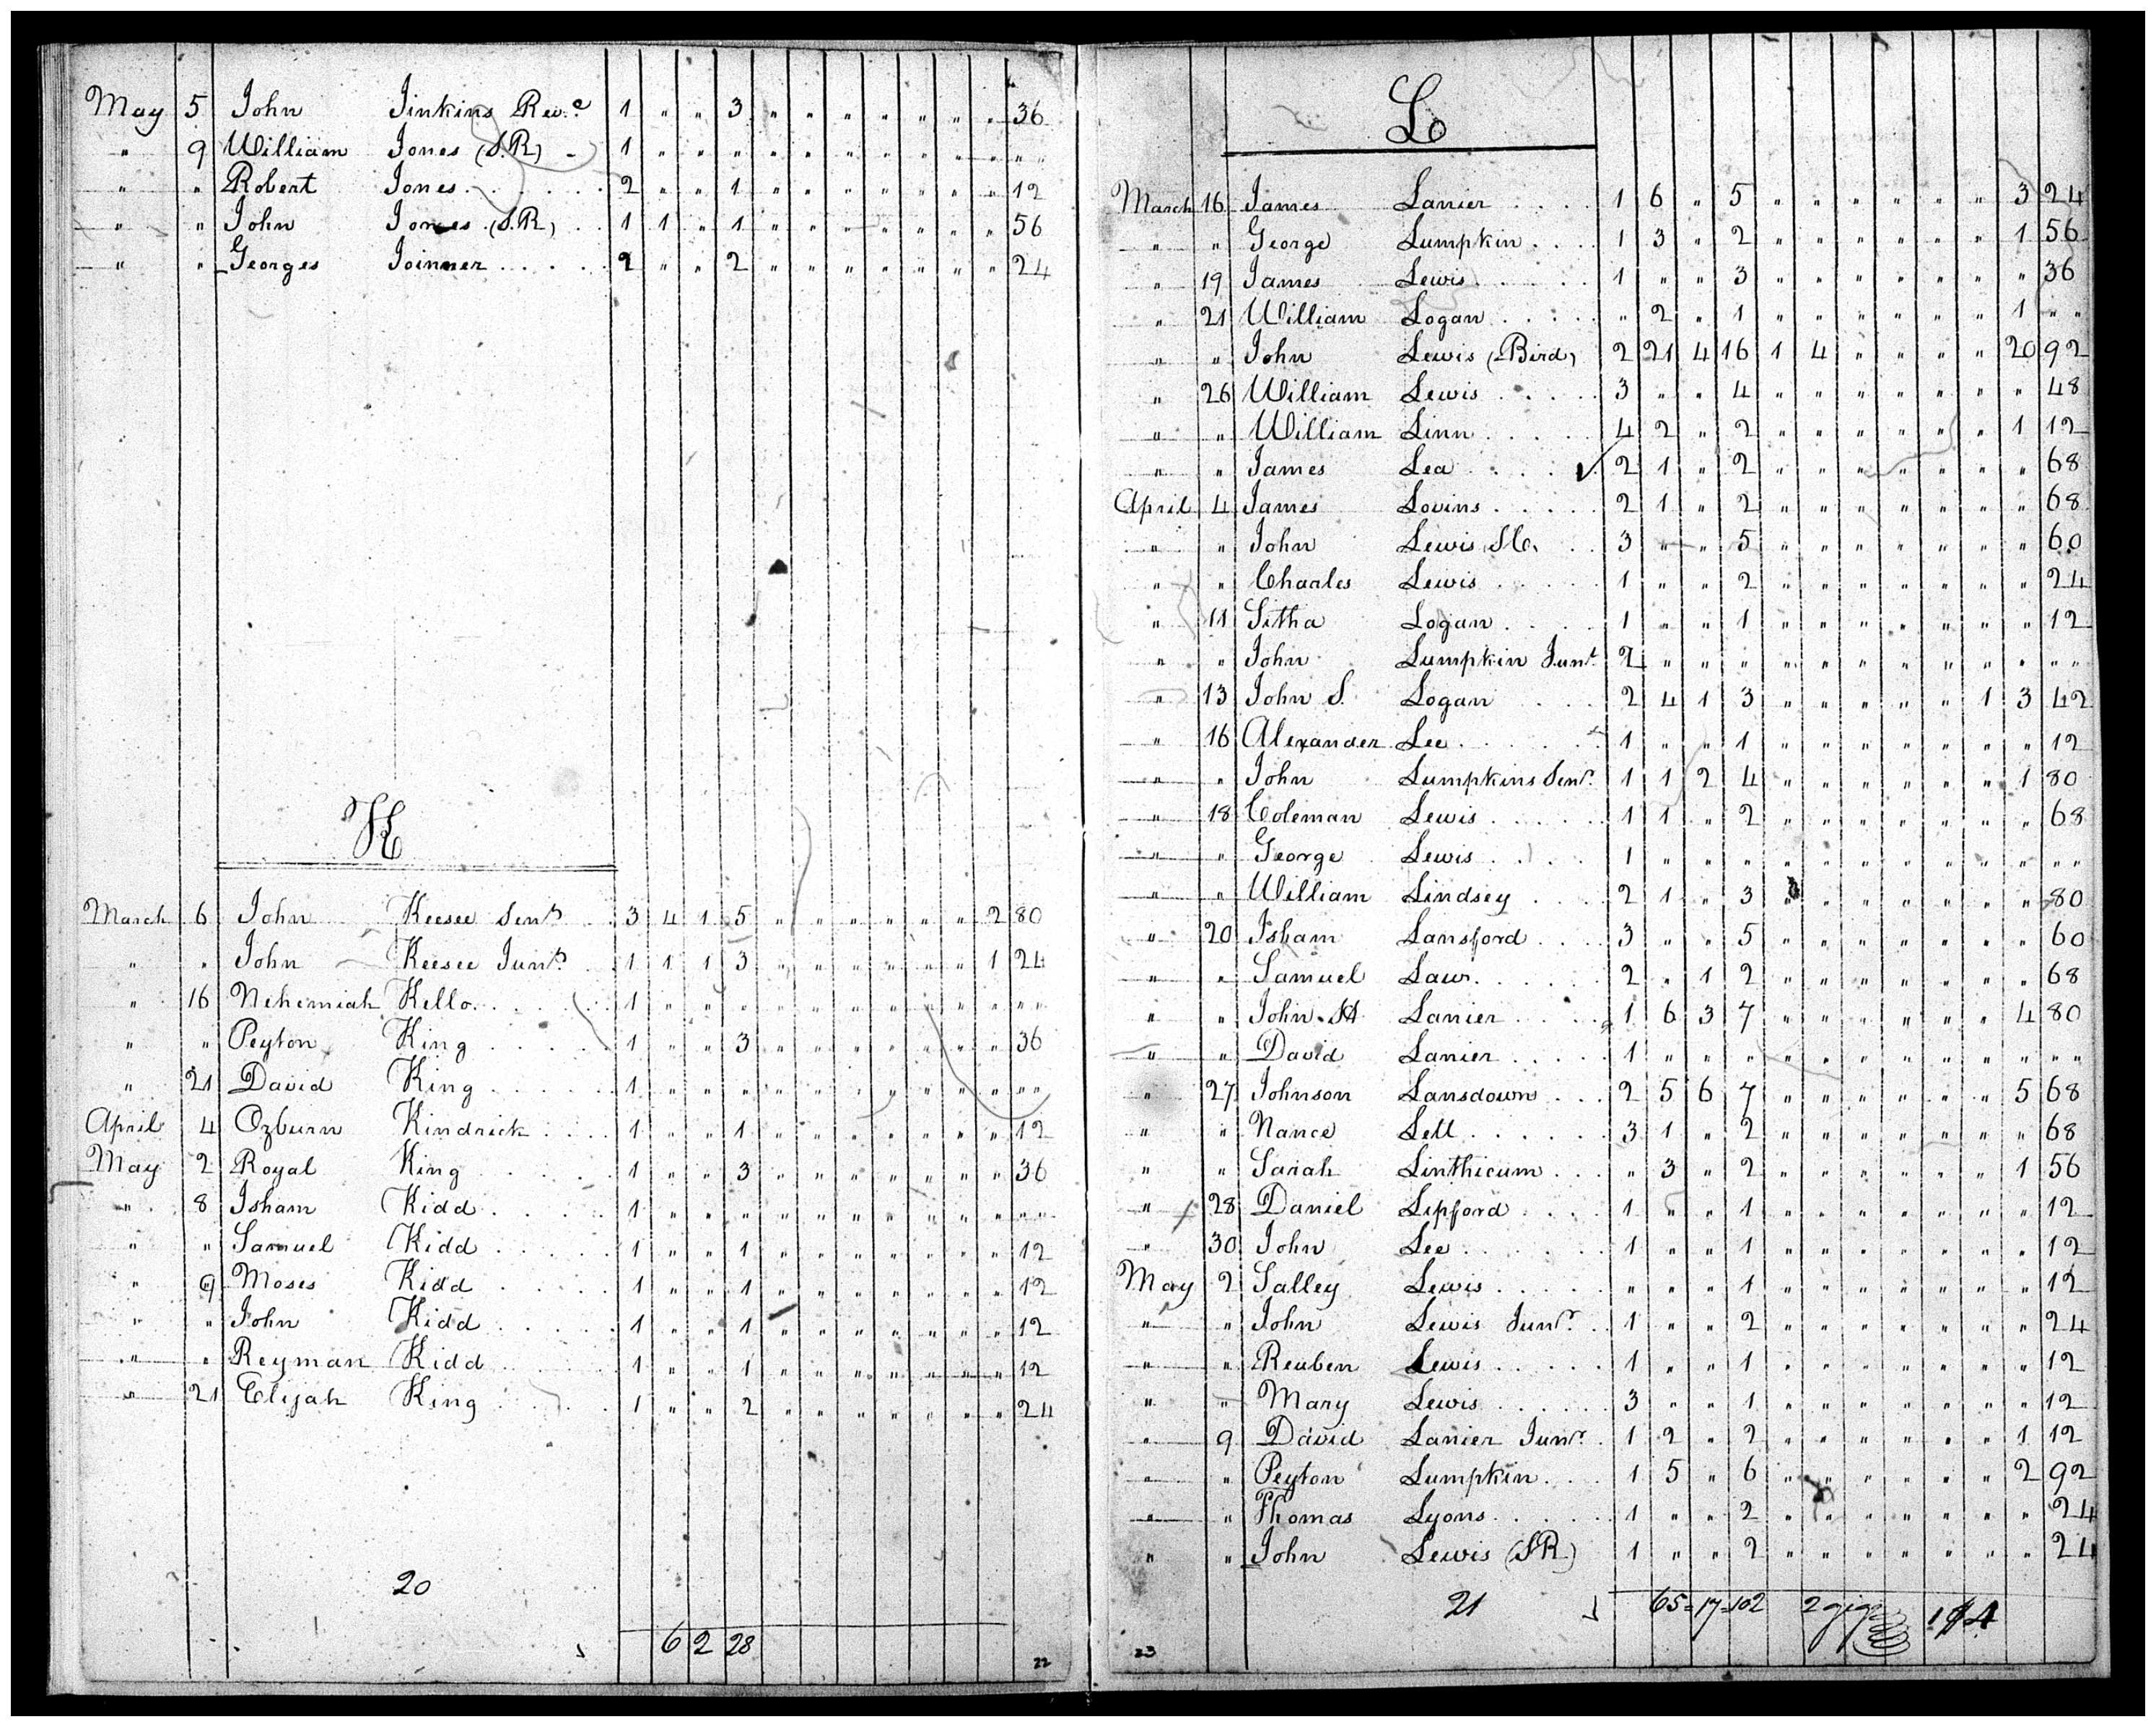 May 5 John Jinkins Rev.e 1 " " 3 " " " " " " " 36
" 9 William Jones (S.R) - 1 " " " " " " " " " " " "
" " Robert Jones . . . . . . 2 " " 1 " " " " " " " 12
" " John Jones (S.R) . . 1 1 " 1 " " " " " " " 56
" " Georges Joinner . . . . . 2 " " 2 " " " " " " " 24
K
March 6 John Keesee Senr . 3 4 1 5 " " " " " " 2 80
" " John Keesee Junr . 1 1 1 3 " " " " " " 1 24
" 16 Nehemiah Kello . . . . . 1 " " " " " " " " " " " "
" " Peyton King . . . . . 1 " " 3 " " " " " " " 36
" 21 David King . . . . . 1 " " " " " " " " " " " "
April 4 Ozburn Kindrick . . . . 1 " " 1 " " " " " " " 12
May 2 Royal King . . . . . 1 " " 3 " " " " " " " 36
" 8 Isham Kidd . . . . . 1 " " " " " " " " " " " "
" " Samuel Kidd . . . . . 1 " " 1 " " " " " " " 12
" 9 Moses Kidd . . . . . 1 " " 1 " " " " " " " 12
" " John Kidd . . . . . 1 " " 1 " " " " " " " 12
" " Reyman Kidd . . . . . 1 " " 1 " " " " " " " 12
" 21 Elijah King . . . . . 1 " " 2 " " " " " " " 24
20
6 2 28
22
L
March 16 James Lanier . . . . 1 6 " 5 " " " " " " 3 24
" " George Lumpkin . . . . 1 3 " 2 " " " " " " 1 56
" 19 James Lewis . . . . . 1 " " 3 " " " " " " " 36
" 21 William Logan . . . . . " 2 " 1 " " " " " " 1 " "
" " John Lewis (Bird) 2 21 4 16 1 4 " " " " 20 92
" 26 William Lewis . . . . . 3 " " 4 " " " " " " " 48
" " William Linn . . . . . 4 2 " 2 " " " " " " 1 12
" " James Lea . . . . ✓ 2 1 " 2 " " " " " " " 68
April 4 James Lovins . . . . . 2 1 " 2 " " " " " " " 68
" " John Lewis . . 3 " " 5 " " " " " " " 60
" " Charles Lewis . . . . . 1 " " 2 " " " " " " " 24
" 11 Sitha Logan . . . . 1 " " 1 " " " " " " " 12
" " John Lumpkin Junr 2 " " " " " " " " " " " "
" 13 John S. Logan . . . 2 4 1 3 " " " " " 1 3 42
" 16 Alexander Lee . . . . . . 1 " " 1 " " " " " " " 12
" " John Lumpkins Senr. 1 1 2 4 " " " " " " 1 80
" 18 Coleman Lewis . . . . . 1 1 " 2 " " " " " " " 68
" " George Lewis . . . . 1 " " " " " " " " " " " "
" " William Lindsey . . . . 2 1 " 3 " " " " " " " 80
" 20 Isham Lansford . . . . 3 " " 5 " " " " " " " 60
" " Samuel Law . . . . . . 2 " 1 2 " " " " " " " 68
" " John H Lanier . . . . 1 6 3 7 " " " " " " 4 80
" " David Lanier . . . . . 1 " " " " " " " " " " " "
" 27 Johnson Lansdown . . . 2 5 6 7 " " " " " " 5 68
" " Nance Lett . . . . . . 3 1 " 2 " " " " " " " 68
" " Sariah Linthicum . . . " 3 " 2 " " " " " " 1 56
" 28 Daniel Lipford . . . . 1 " " 1 " " " " " " " 12
" 30 John Lee . . . . . . 1 " " 1 " " " " " " " 12
May 2 Salley Lewis . . . . . " " " 1 " " " " " " " 12
" " John Lewis Junr. . 1 " " 2 " " " " " " " 24
" " Reuben Lewis . . . . . 1 " " 1 " " " " " " " 12
" " Mary Lewis . . . . . . 3 " " 1 " " " " " " " 12
" 9 David Lanier Junr. . 1 2 " 2 " " " " " " 1 12
" " Peyton Lumpkin . . . 1 5 " 6 " " " " " " 2 92
" " Thomas Lyons . . . . . 1 " " 2 " " " " " " " 24
" " John Lewis (SR) 1 " " 2 " " " " " " " 24
21
65 = 17 = 102 2 gigs
23